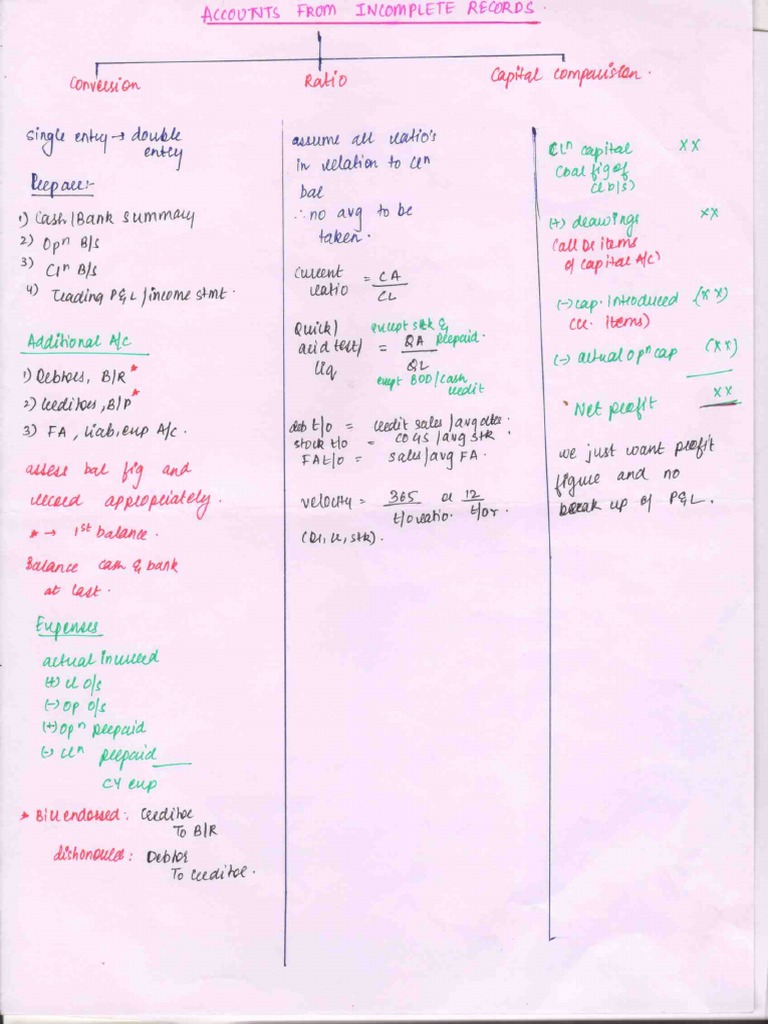 ACCOUNTS FROM INCOMPLETE RECORDS.
Conversion
single entry → double
entry
Prepare:-
1) Cash/Bank summary
2) Opn B/s
3) Cln B/s
4) Trading P&L/income stmt.
Additional A/c
1) Debtors, B/R*
2) Creditors, B/P*
3) FA, liab, exp A/c.
assess bal fig and
record appropriately.
* → 1st balance.
Balance cash & bank
at last.
Expenses
actual incurred
(+) cl o/s
(-) op o/s
(+) opn prepaid
(-) cln prepaid
CY exp
* Bill endorsed: Creditor
To B/R
dishonoured: Debtor
To Creditor.
Ratio
assume all ratio's
in relation to cln
bal
∴ no avg to be
taken.
Current
ratio = CA
CL
Quick/
acid test/
liq
= QA
QL
except stk &
prepaid.
except BOD/cash
credit
deb t/o = credit sales/avg
stock t/o = COGS/avg stk.
FA t/o = sales/avg FA.
velocity = 365 or 12
t/o ratio. t/o r.
(Dr, cr, stk).
Capital comparision.
Cln capital XX
(bal fig of
cl b/s)
(+) drawings XX
(all Dr items
of capital A/c)
(-) cap. introduced (XX)
(cr. items)
(-) actual opn cap (XX)
Net profit XX
we just want profit
figure and no
break up of P&L.